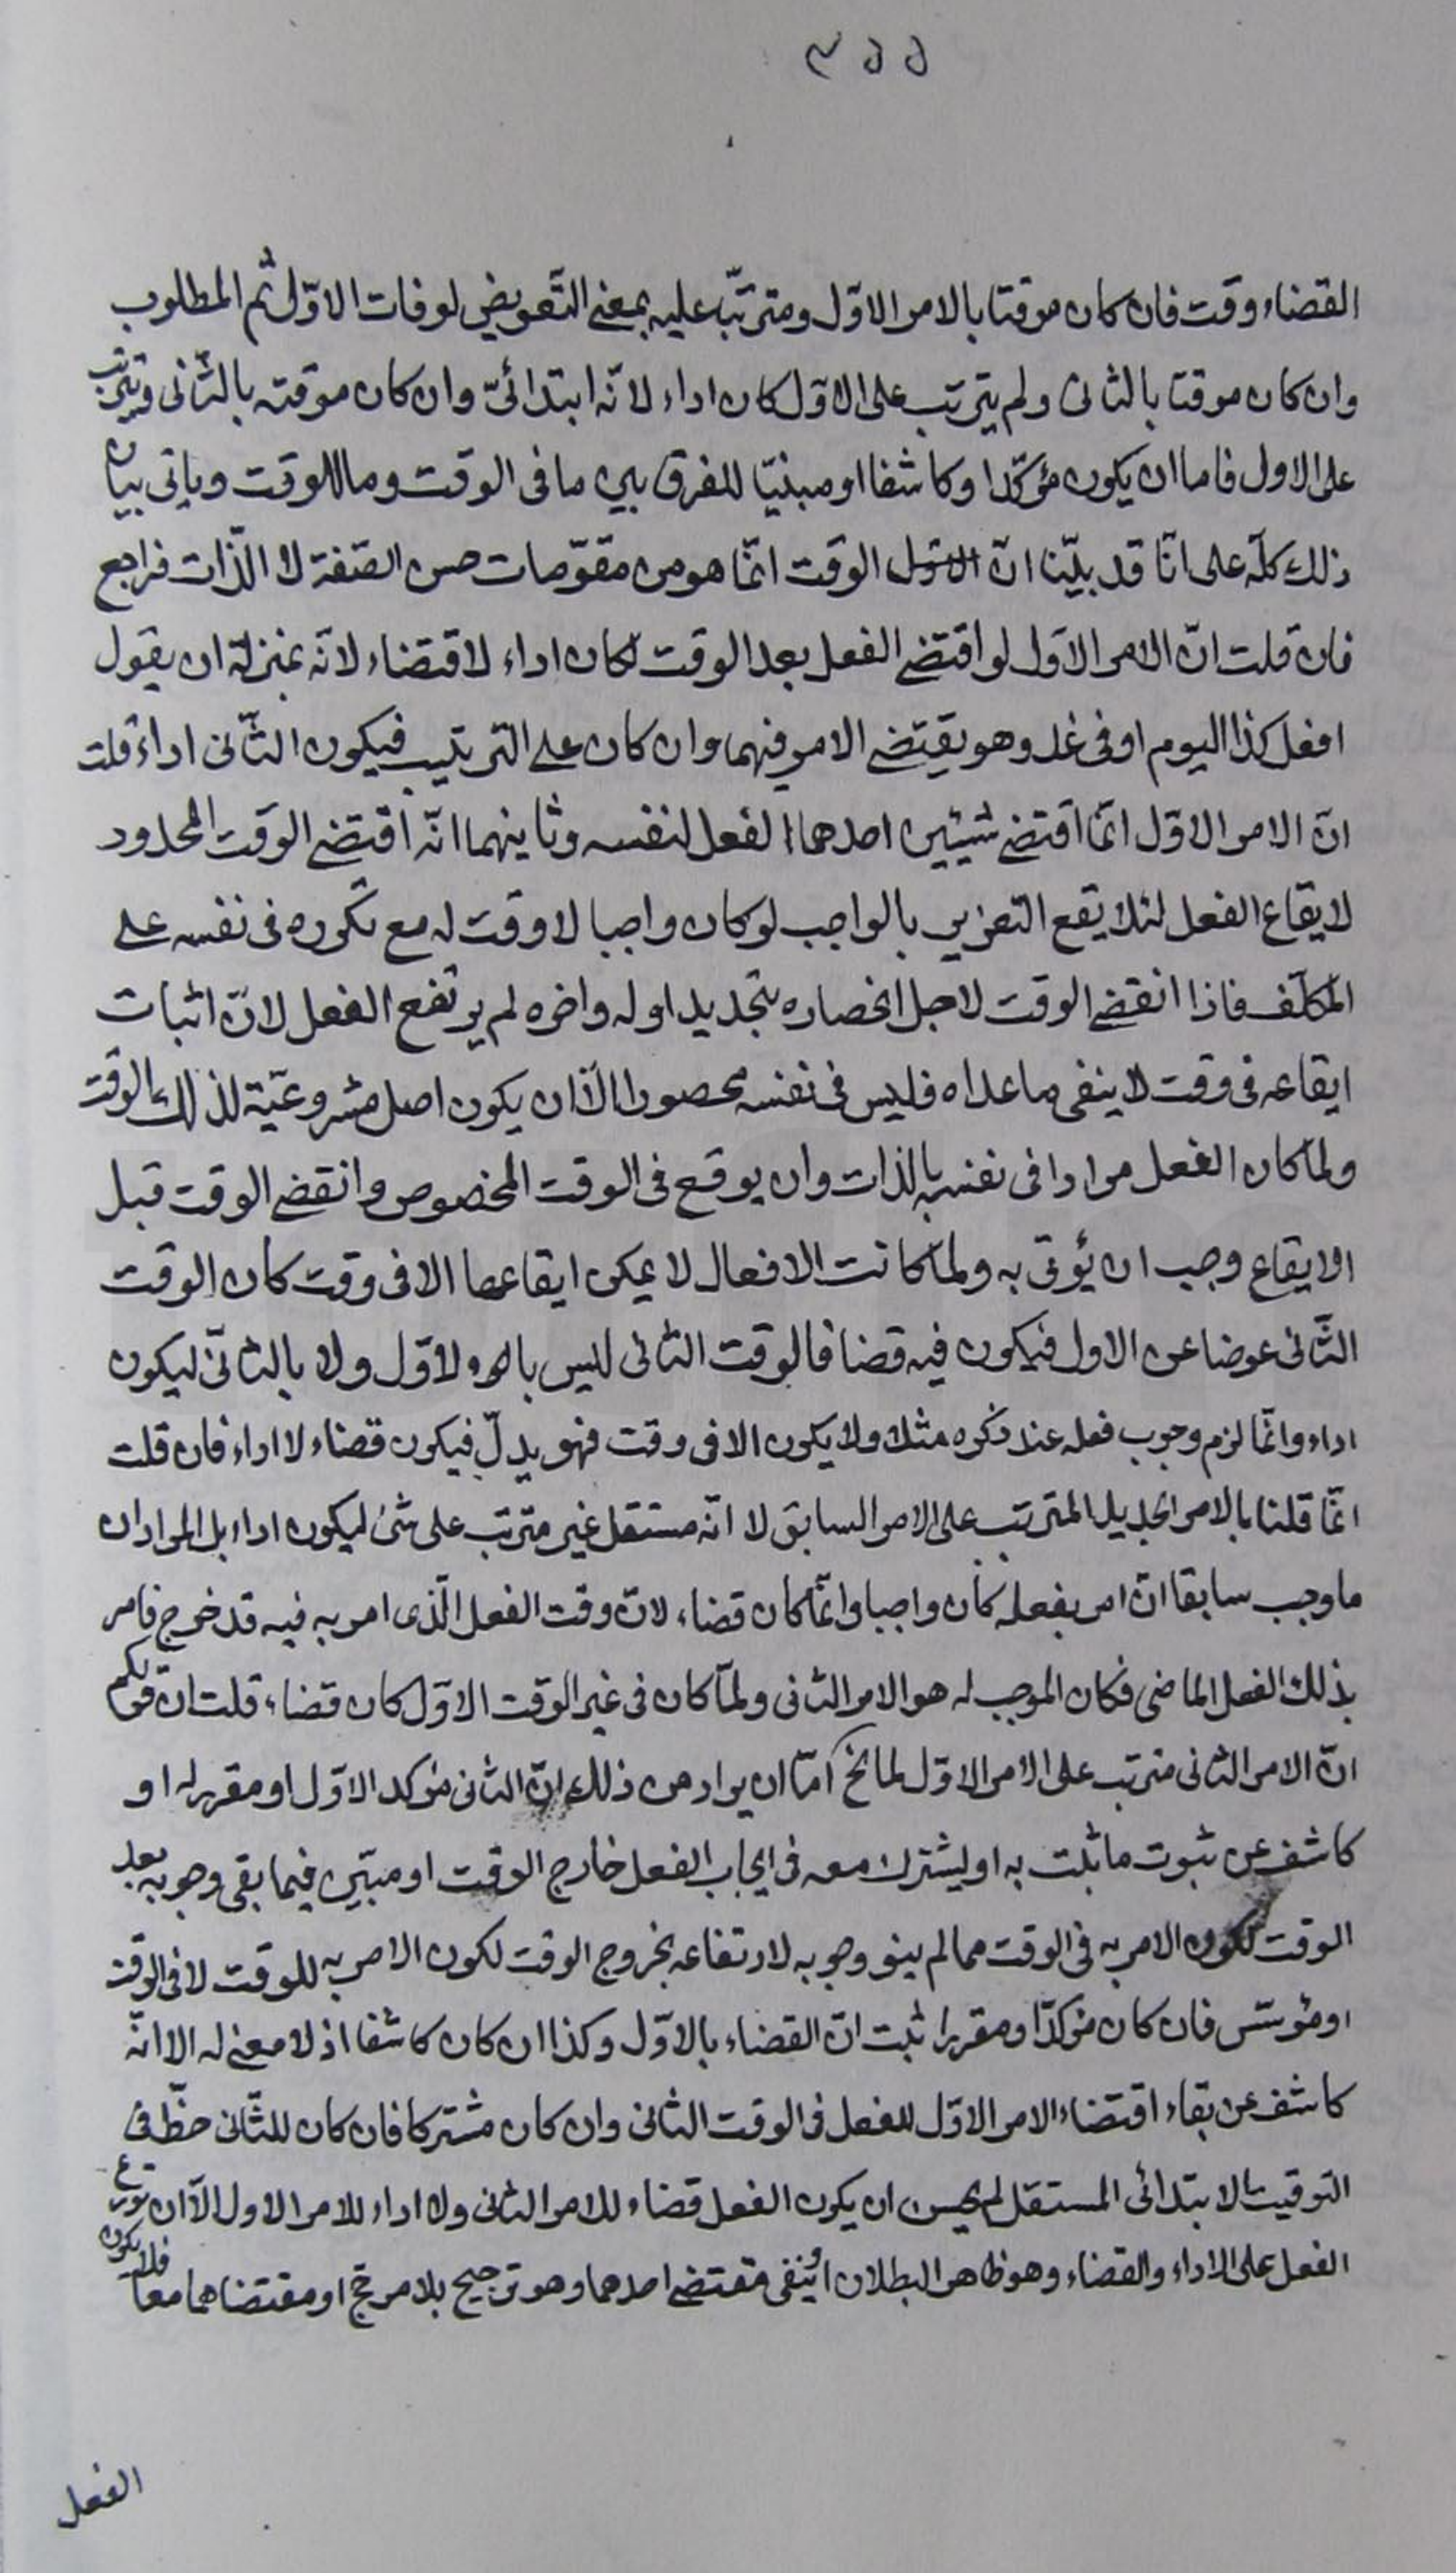 القضاء وقت فان كان موقتا بالامر الاوّل ومترتّب عليه بمعنى التّعويض لوفات الاوّل ثم المطلوب
وان كان موقتا بالثانى ولم يترتب على الاوّل كان اداء لانّه ابتدائىّ وان كان موقته بالثّانى وترتب
على الاول فاما ان يكون مؤكّدا وكاشفا او مبنيّا للفرق بين ما فى الوقت وما للوقت وياتى بيان
ذلك كلّه على انّا قد بيّنا انّ الوقت انّما هو من مقوّمات حسن الصّفة لا الذّات فراجع
فان قلت انّ الامر الاوّل لو اقتضى الفعل بعد الوقت لكان اداء لاقتضاء لانّه بمنزلة ان يقول
افعل كذا اليوم او فى غد وهو يقتضى الامر فيهما وان كان على الترتيب فيكون الثّانى اداء قلت
انّ الامر الاوّل انّما اقتضى شيئين احدهما الفعل لنفسه وثانيهما انّه اقتضى الوقت المحدود
لايقاع الفعل لئلا يقع التعزير بالواجب لو كان واجبا لا وقت له مع تكرره فى نفسه على
المكلّف فاذا انقضى الوقت لاجل انحصاره بتحديد اوله واخره لم يرتفع الفعل لانّ اثبات
ايقاعه فى وقت لا ينفى ما عداه فليس فى نفسه محصورا الّا ان يكون اصل مشروعيّة لذلك الوقت
ولمّا كان الفعل مرادا فى نفسه بالذات وان يوقع فى الوقت المخصوص وانقضى الوقت قبل
الايقاع وجب ان يؤتى به ولمّا كانت الافعال لا يمكن ايقاعها الا فى وقت كان الوقت
الثّانى عوضا عن الاول فيكون فيه قضا فالوقت الثانى ليس بالاوّل ولا بالثانىّ ليكون
اداء وانّما لزم وجوب فعله عند ذكره مثلا ولا يكون الا فى وقت فهو بدلّ فيكون قضاء لا اداء فان قلت
انّما قلنا بالامر الجديد المترتب على الامر السابق لا انّه مستقل غير مترتب على شئ ليكون اداء بل المراد ان
ما وجب سابقا انّ امر بفعله كان واجبا وانّما كان قضاء لانّ وقت الفعل الّذى امر به فيه قد خرج فامر
بذلك الفعل الماضى فكان الموجب له هو الامر الثانى ولمّا كان فى غير الوقت الاوّل كان قضاء قلت انّ قولكم
انّ الامر الثانى مترتب على الامر الاوّل امّا ان يراد من ذلك انّ الثانى مؤكد الاوّل او مقرر له او
كاشف عن ثبوت ما ثبت به او ليشترك معه فى ايجاب الفعل خارج الوقت او مبيّن فيما بقى وجوبه بعد
الوقت لكون الامر به فى الوقت مما لم ينو وجوبه لارتفاعه بخروج الوقت لكون الامر به للوقت لا فى الوقت
او مؤسّس فان كان مؤكدّا ومقررا ثبت انّ القضاء بالاوّل وكذا ان كان كاشفا اذ لا معنى له الا انّه
كاشف عن بقاء اقتضاء الامر الاوّل للفعل فى الوقت الثانى وان كان مشتركا فان كان للثّانى حظّ فى
التوقيت الابتدائى المستقل لم يحسن ان يكون الفعل قضاء للامر الثانى ولا اداء للامر الاول الّا ان توزع
الفعل على الاداء والقضاء وهو ظاهر البطلان او ينفى مقتضى احدهما وهو ترجيح بلا مرجّح او مقتضاهما معا فلا يكون
الفعل